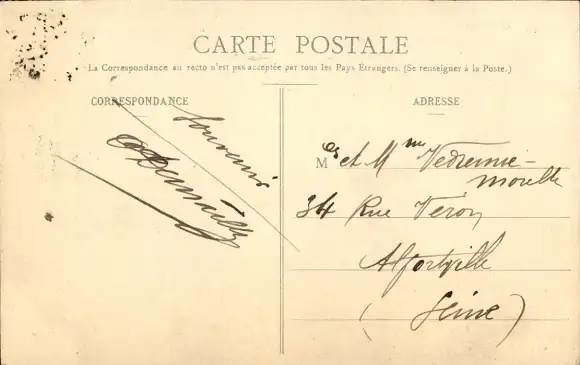 CARTE POSTALE
La Correspondance au recto n'est pas acceptée par tous les Pays Étrangers. (Se renseigner à la Poste.)
CORRESPONDANCE
Souvenir
ADRESSE
M et Mme
34 Rue Véron
Alfortville
(Seine)